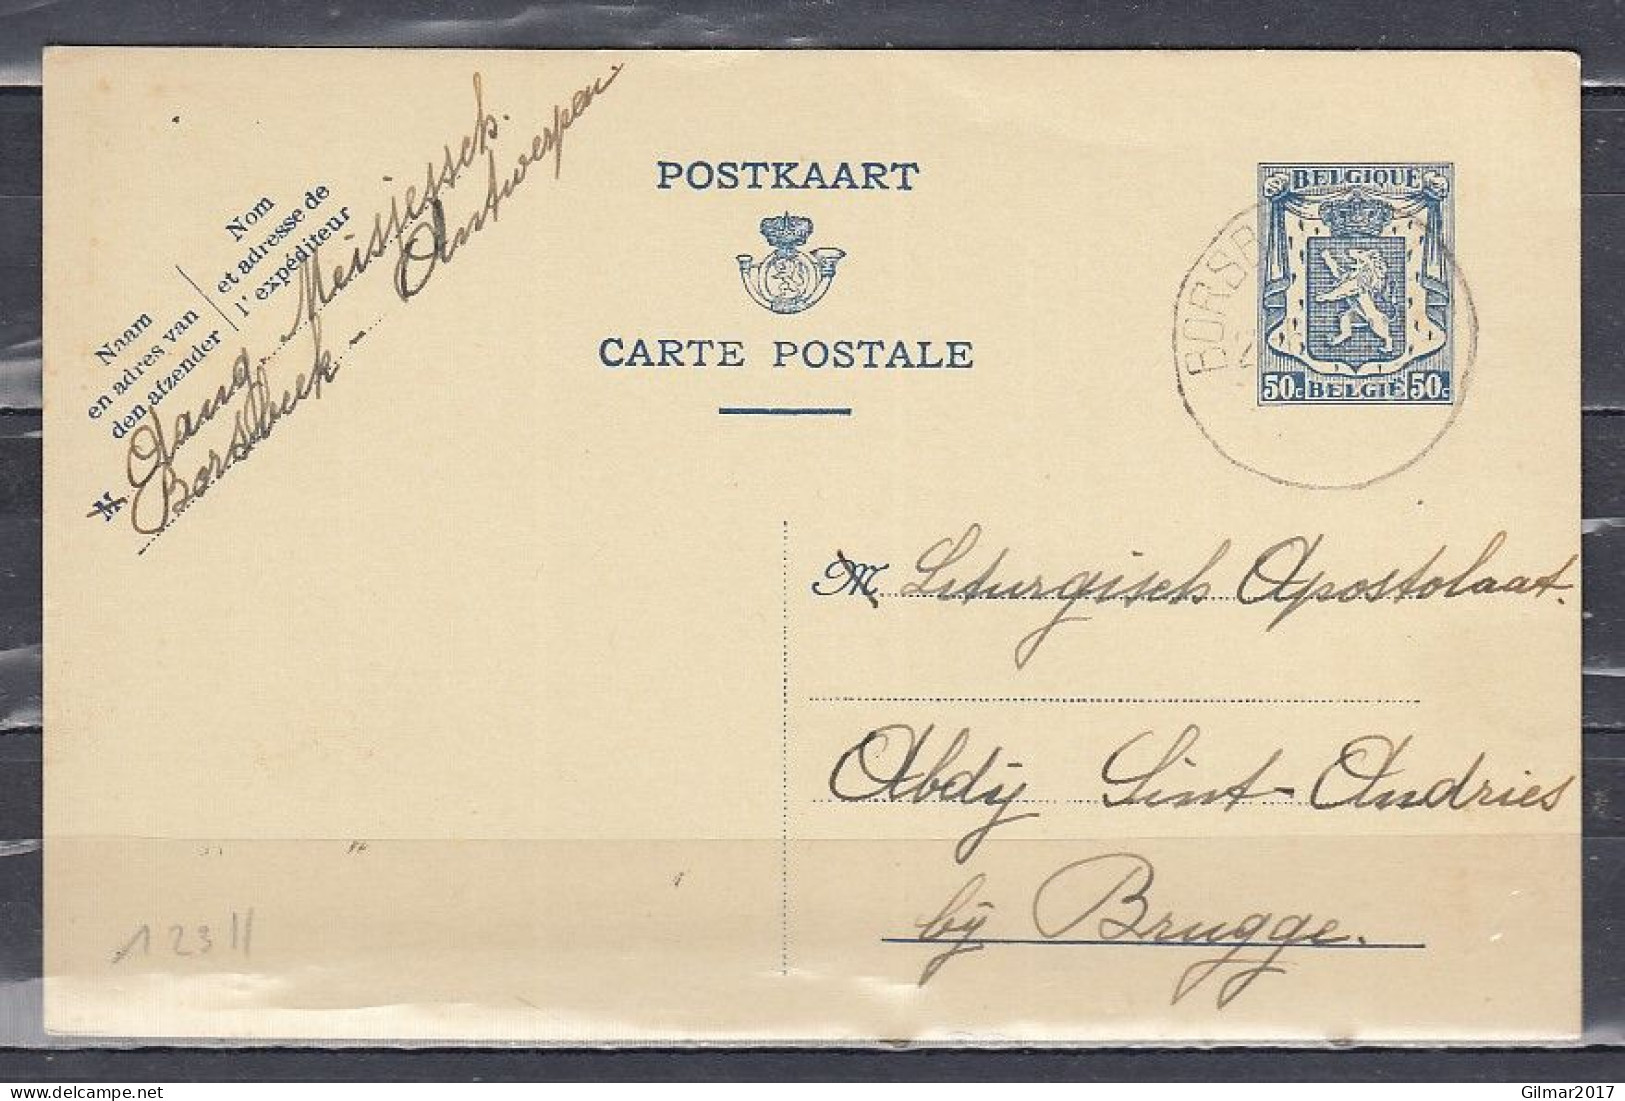 Naam
en adres van
den afzender
Nom
et adresse de
l'expéditeur
M Aang. Meisjessch.
Borsbeek - Antwerpen
POSTKAART
CARTE POSTALE
BELGIQUE
50c BELGIË 50c
BORSB
M Liturgisch Apostolaat.
Abdij Sint-Andries
bij Brugge.
123 ||
Gilmar2017